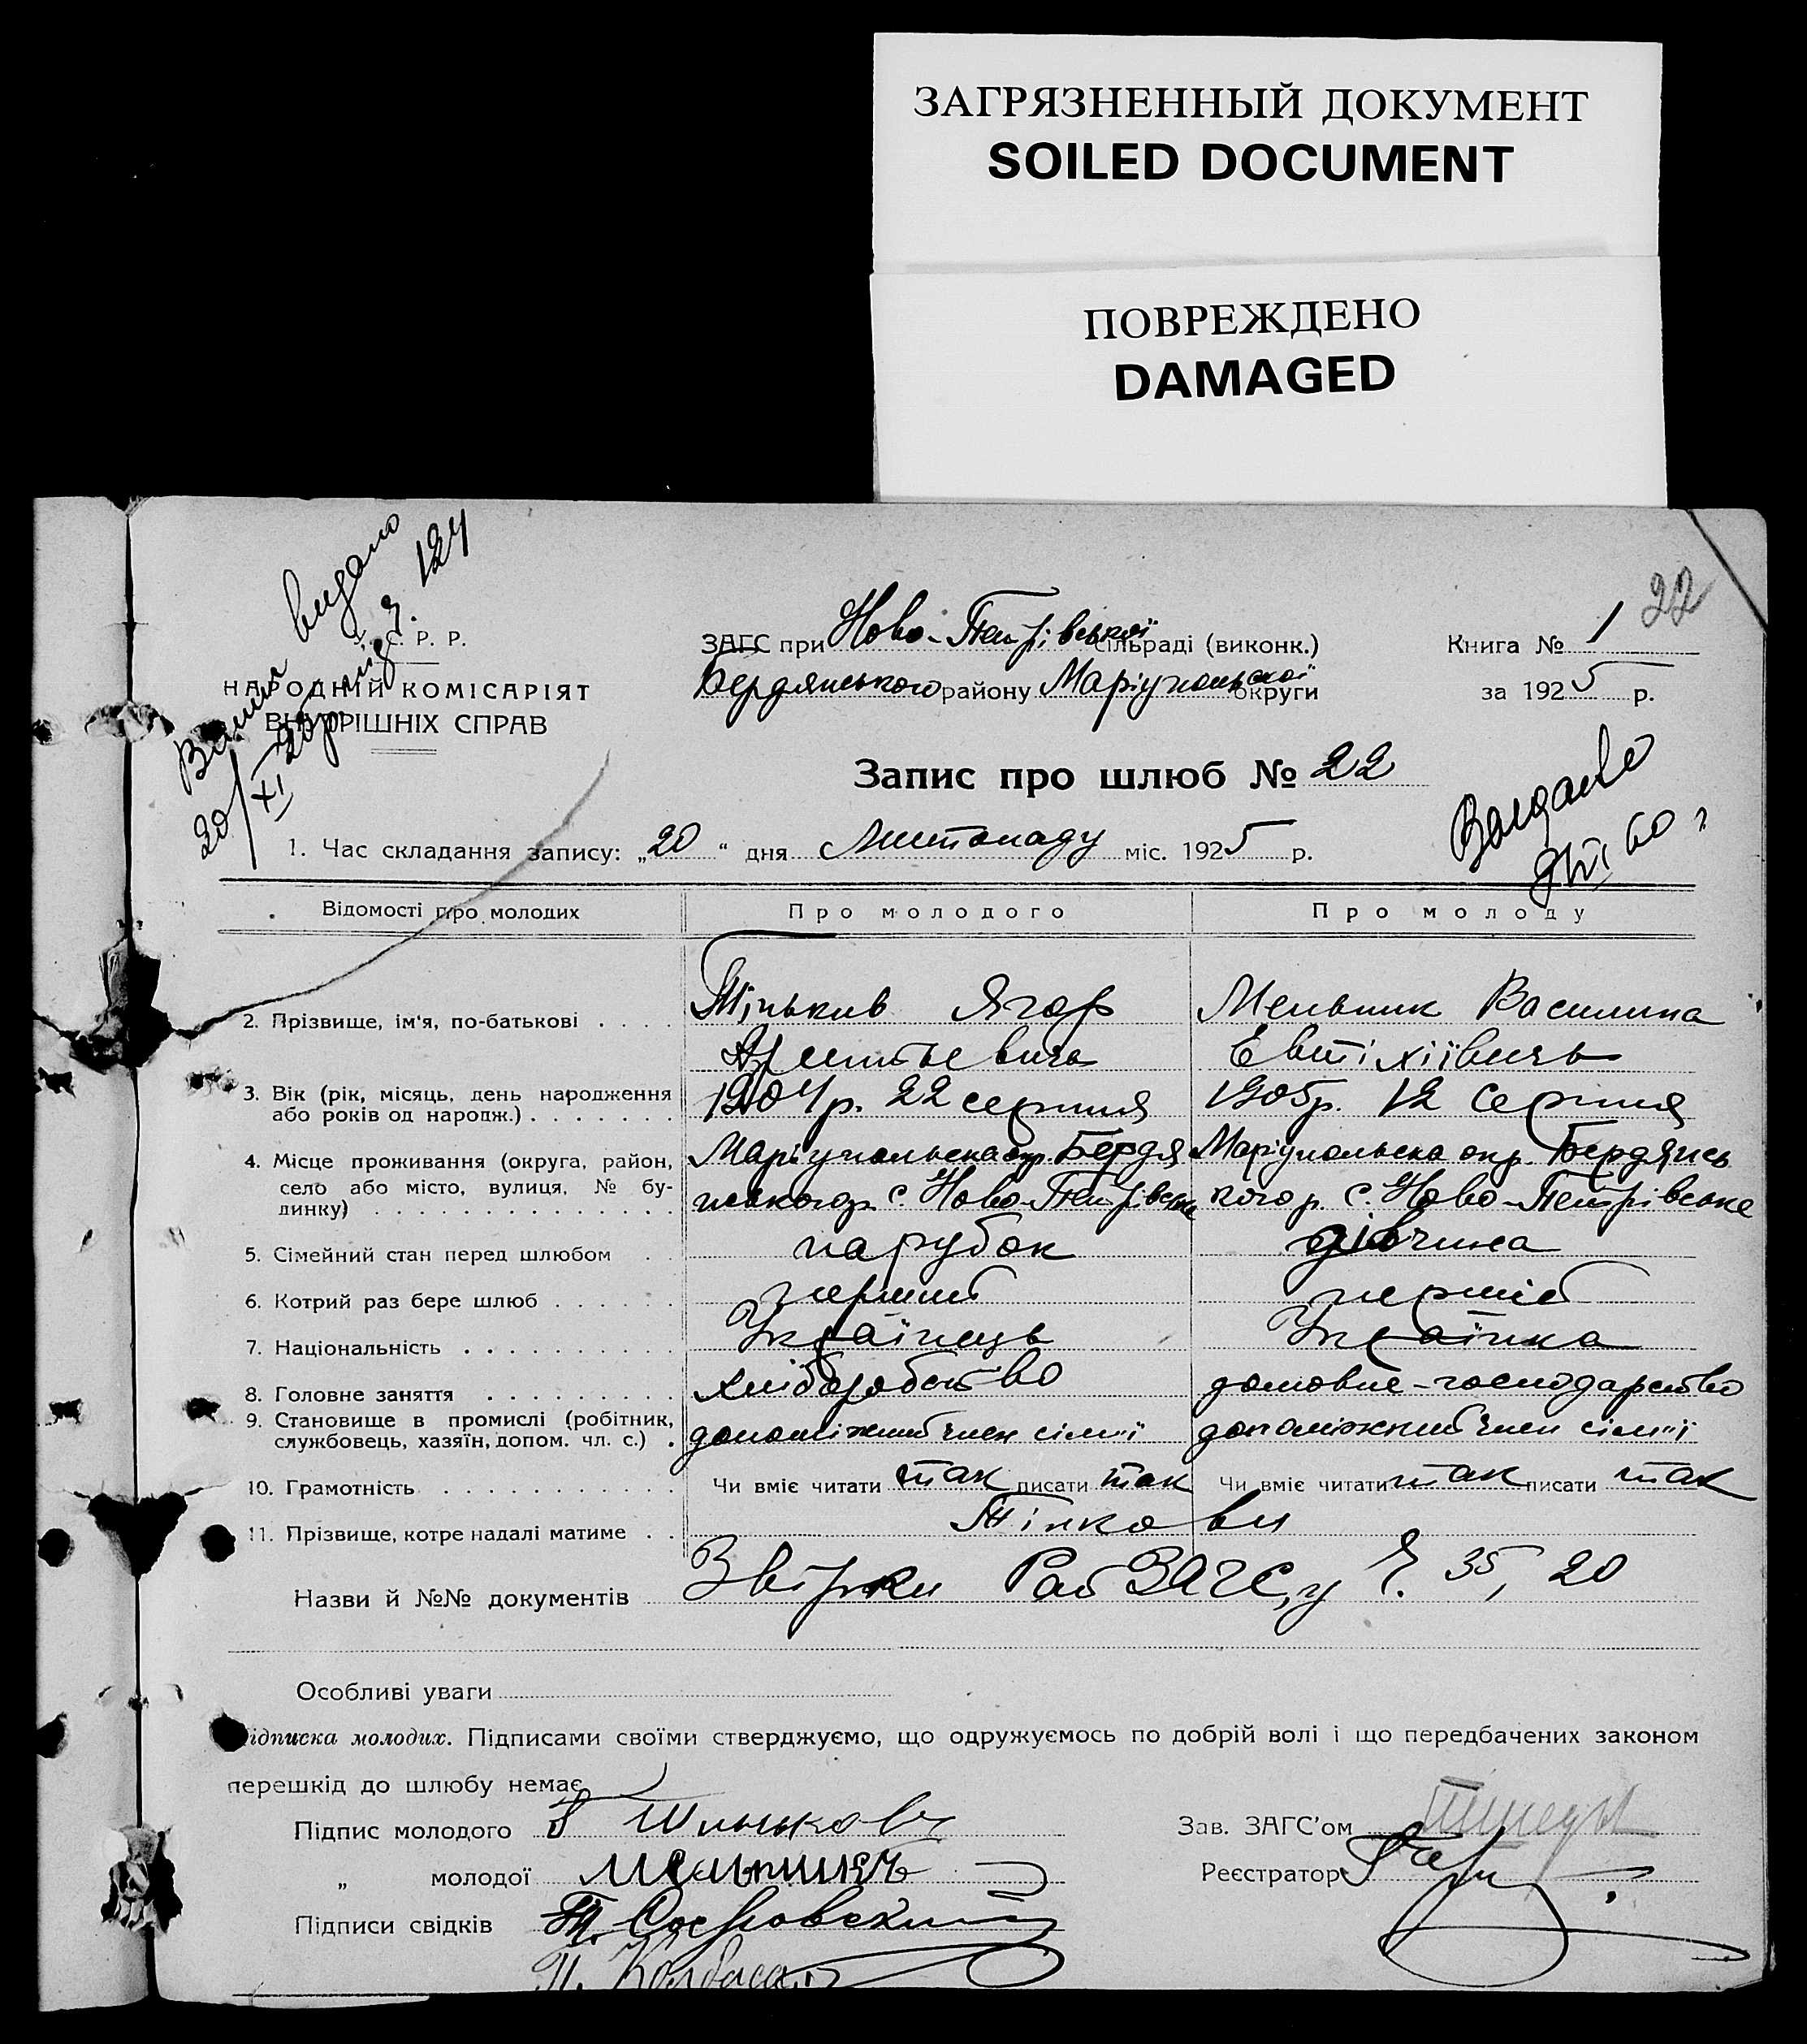 ЗАГРЯЗНЕННЫЙ ДОКУМЕНТ
SOILED DOCUMENT
ПОВРЕЖДЕНО
DAMAGED
видано
20/XI 25р під з. 124
22
С. Р. Р.
НАРОДНІЙ КОМІСАРІЯТ
ВНУТРІШНІХ СПРАВ
ЗАГС при Ново-Петрівської сільраді (виконк.)
Бердянського району Маріупольської округи
Книга № 1
за 1925 р.
Запис про шлюб № 22
1. Час складання запису: „20“ дня Листопаду міс. 1925 р.
Відомості про молодих Про молодого Про молоду
2. Прізвище, ім'я, по-батькові Тіньків Ягор Мельник Василина
Евтіхіївичь
3. Вік (рік, місяць, день народження або років од народж.) 1904р. 22 серпня 1905р. 12 Серпня
4. Місце проживання (округа, район, Маріупольска окр. Бердя Маріупольска окр. Бердянсь
село або місто, вулиця, № бу- нського р. с. Ново-Петрівське кого р. с. Ново-Петрівське
динку)
5. Сімейний стан перед шлюбом парубок дівчина
6. Котрий раз бере шлюб перший перший
7. Національність Українець Українка
8. Головне заняття хліборобство домовне-господарство
9. Становище в промислі (робітник,
службовець, хазяїн, допом. чл. с.) допоміжний член сім"ї допоміжний член сім"ї
10. Грамотність Чи вміє читати так писати так Чи вміє читати так писати так
11. Прізвище, котре надалі матиме Тінкови
Назви й №№ документів Звірки ЗАГС,у Ч. 35, 20
Особливі уваги
Підписка молодих. Підписами своїми стверджуємо, що одружуємось по добрій волі і що передбачених законом
перешкід до шлюбу немає
Підпис молодого Тиньков
Зав. ЗАГС'ом
„ молодої Мельникъ
Реєстратор
Підписи свідків
П. Колбаса